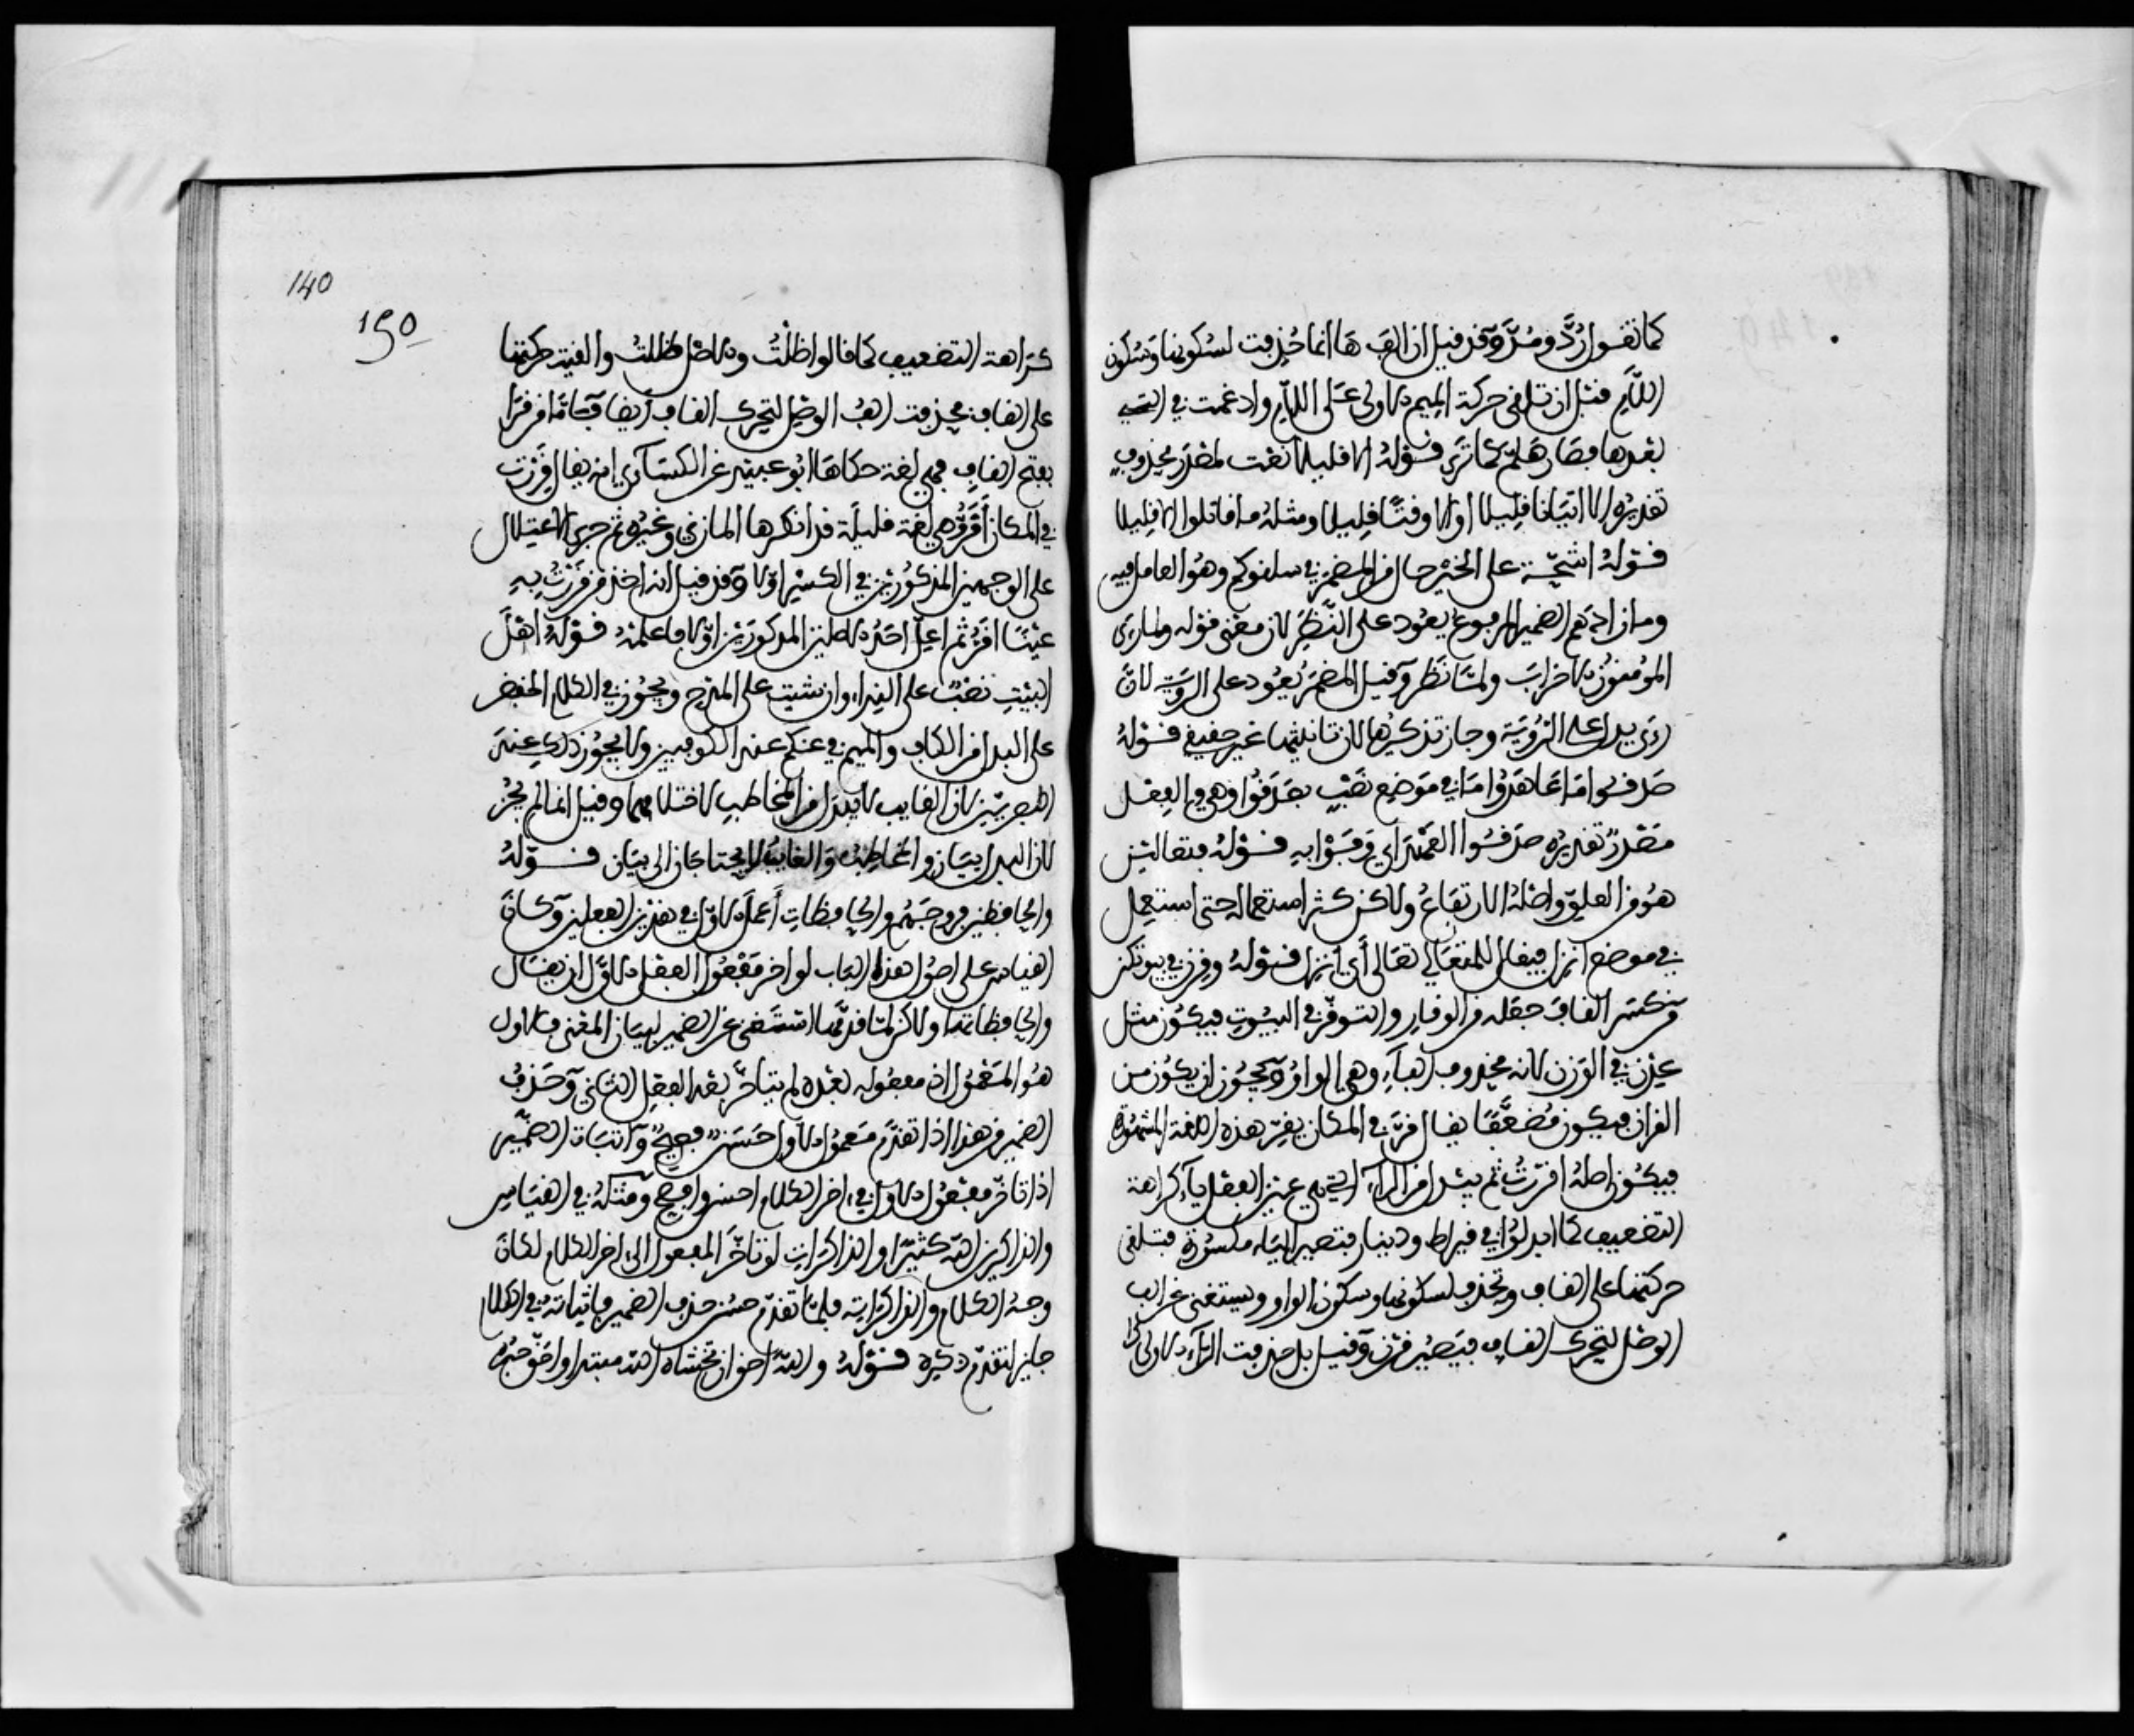 كما تقول رُدَّ ومُدَّ وقد قيل ان الف ها انما حُذِفت لسُكونها وسُكون
اللام قبل ان تلقى حركة الميم الاولى على اللام وادغمت في التي
بعدها فصار هَلُمَّ كما ترى قوله الا قليلا نعت لمصدر محذوف
تقديره الا اتيانا قليلا او الا وقتا قليلا ومثله ما قاتلوا الا قليلا
قوله اشحّة على الخير حال من المضمر في سلقوكم وهو العامل فيه
وما زادهم الضمير المرفوع يعود على النَّظَرِ لان معنى قوله ولما رءى
المؤمنون الاحزاب ولمّا نَظَر وقيل المضمر يعود على الرؤية لان
رءى يدل على الرُّؤية وجاز تذكيرها لان تانيثها غير حقيقي قوله
صدقوا ما عاهدوا ما في موضع نصب بصدقوا وهي والفعل
مصدر تقديره صدقوا العهد اي وفوا به قوله فتعالين
هو من العلوّ واصله الارتفاع ولاكن كثر استعماله حتى استعمل
في موضع انزل فيقال للمتعالي تعالى أي انزل قوله وقرن في بيوتكن
من كسر القاف جعله من الوقار والتوقّر في البيوت فيكون مثل
عِدْن في الوزن لانه محذوف الفاء وهي الواو ويجوز ان يكون من
القرار فيكون مُضعَّفًا يقال قرّ في المكان يقِرّ هذه اللغة المشهورة
فيكون اصله اقررن ثم يبدل من الراء التي هي عين الفعل ياء كراهة
التضعيف كما ابدلوا في قيراط ودينار فتصير الياء مكسورة فتلقى
حركتها على القاف وتحذف لسكونها وسكون الواو ويستغنى عن الف
الوصل لتحرك القاف فيصير قرن وقيل بل حذفت الراء الاولى
140
150
كراهة التضعيف كما قالوا ظَلْتُ والاصل ظللت والقيت حركتها
على القاف فحذفت الف الوصل لتحرك القاف ايضا فاما من قرا
بفتح القاف فهي لغة حكاها ابو عبيد عن الكسائي انه يقال قَرِرْت
في المكان أَقَرّ وهي لغة قليلة قد انكرها المازني وغيره ثم جرى الاعتلال
على الوجهين المذكورين في الكسر اولا وقد قيل انه اخذ من قَرَرْتُ به
عينًا اقَرّ ثم اعل احد الاصلين المذكورين اولا فاعلمه قوله اهل
البيت نصب على النداء وان شيت على المدح ويجوز في الكلام الخفض
على البدل من الكاف والميم في عنكم عند الكوفيين ولا يجوز ذلك عند
البصريين لان الغايب لا يبدل من المخاطب لاختلافهما وقيل انما لم يجز
لان البدل بيان والمخاطب والغايب لا يحتاجان الى بيان قوله
والحافظين فروجهم والحافظات أعمل الاول في هذين الفعلين وكان
القياس على اصول هذا الباب لو اخر مفعول الفعل الاول ان يقال
والحافظاته ولاكن لما قدمه استغنى عن الضمير لبيان المعنى فالاول
هو المعمول اذ مفعوله بعده لم يتاخر بعد الفعل الثاني وحذف
الضمير من هذا اذا تقدم معمول الاول حَسَن فصيح واثبات الضمير
اذا تاخر مفعول الاول في اخر الكلام احسن وافصح ومثله في القياس
والذاكرين الله كثيرًا والذاكرات لو تاخر المفعول الى اخر الكلام لكان
وجه الكلام والذاكراته فلما تقدم حسن حذف الضمير فاثباته في الكلام
جايز لتقدم ذكره قوله والله احق ان تخشاه الله مبتدا واحق خبره